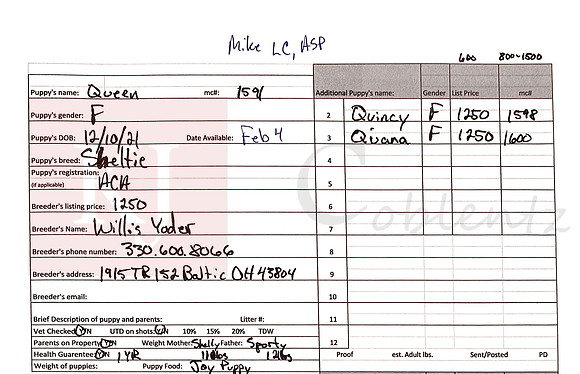 Mike LC, ASP
600 800-1500
Puppy's name: Queen mc#: 1591 Additional Puppy's name: Gender List Price mc#
Puppy's gender: F 2 Quincy F 1250 1598
Puppy's DOB: 12/10/21 Date Available: Feb 4 3 Quiana F 1250 1600
Puppy's breed: Sheltie 4
Puppy's registration:
(if applicable) ACA 5
Breeder's listing price: 1250 6
Breeder's Name: Willis Yoder 7
Coblentz
Breeder's phone number: 330.600.8066 8
Breeder's address: 1915 TR 152 Baltic OH 43804 9
Breeder's email: 10
Brief Description of puppy and parents: Litter #: 11
Vet Checked Y/N UTD on shots: Y/N 10% 15% 20% TDW
Parents on Property Y/N Weight Mother: Shelly Father: Sporty 12
Health Guarentee: Y/N 1 YR lbs lbs Proof est. Adult lbs. Sent/Posted PD
Weight of puppies: Puppy Food: Joy Puppy